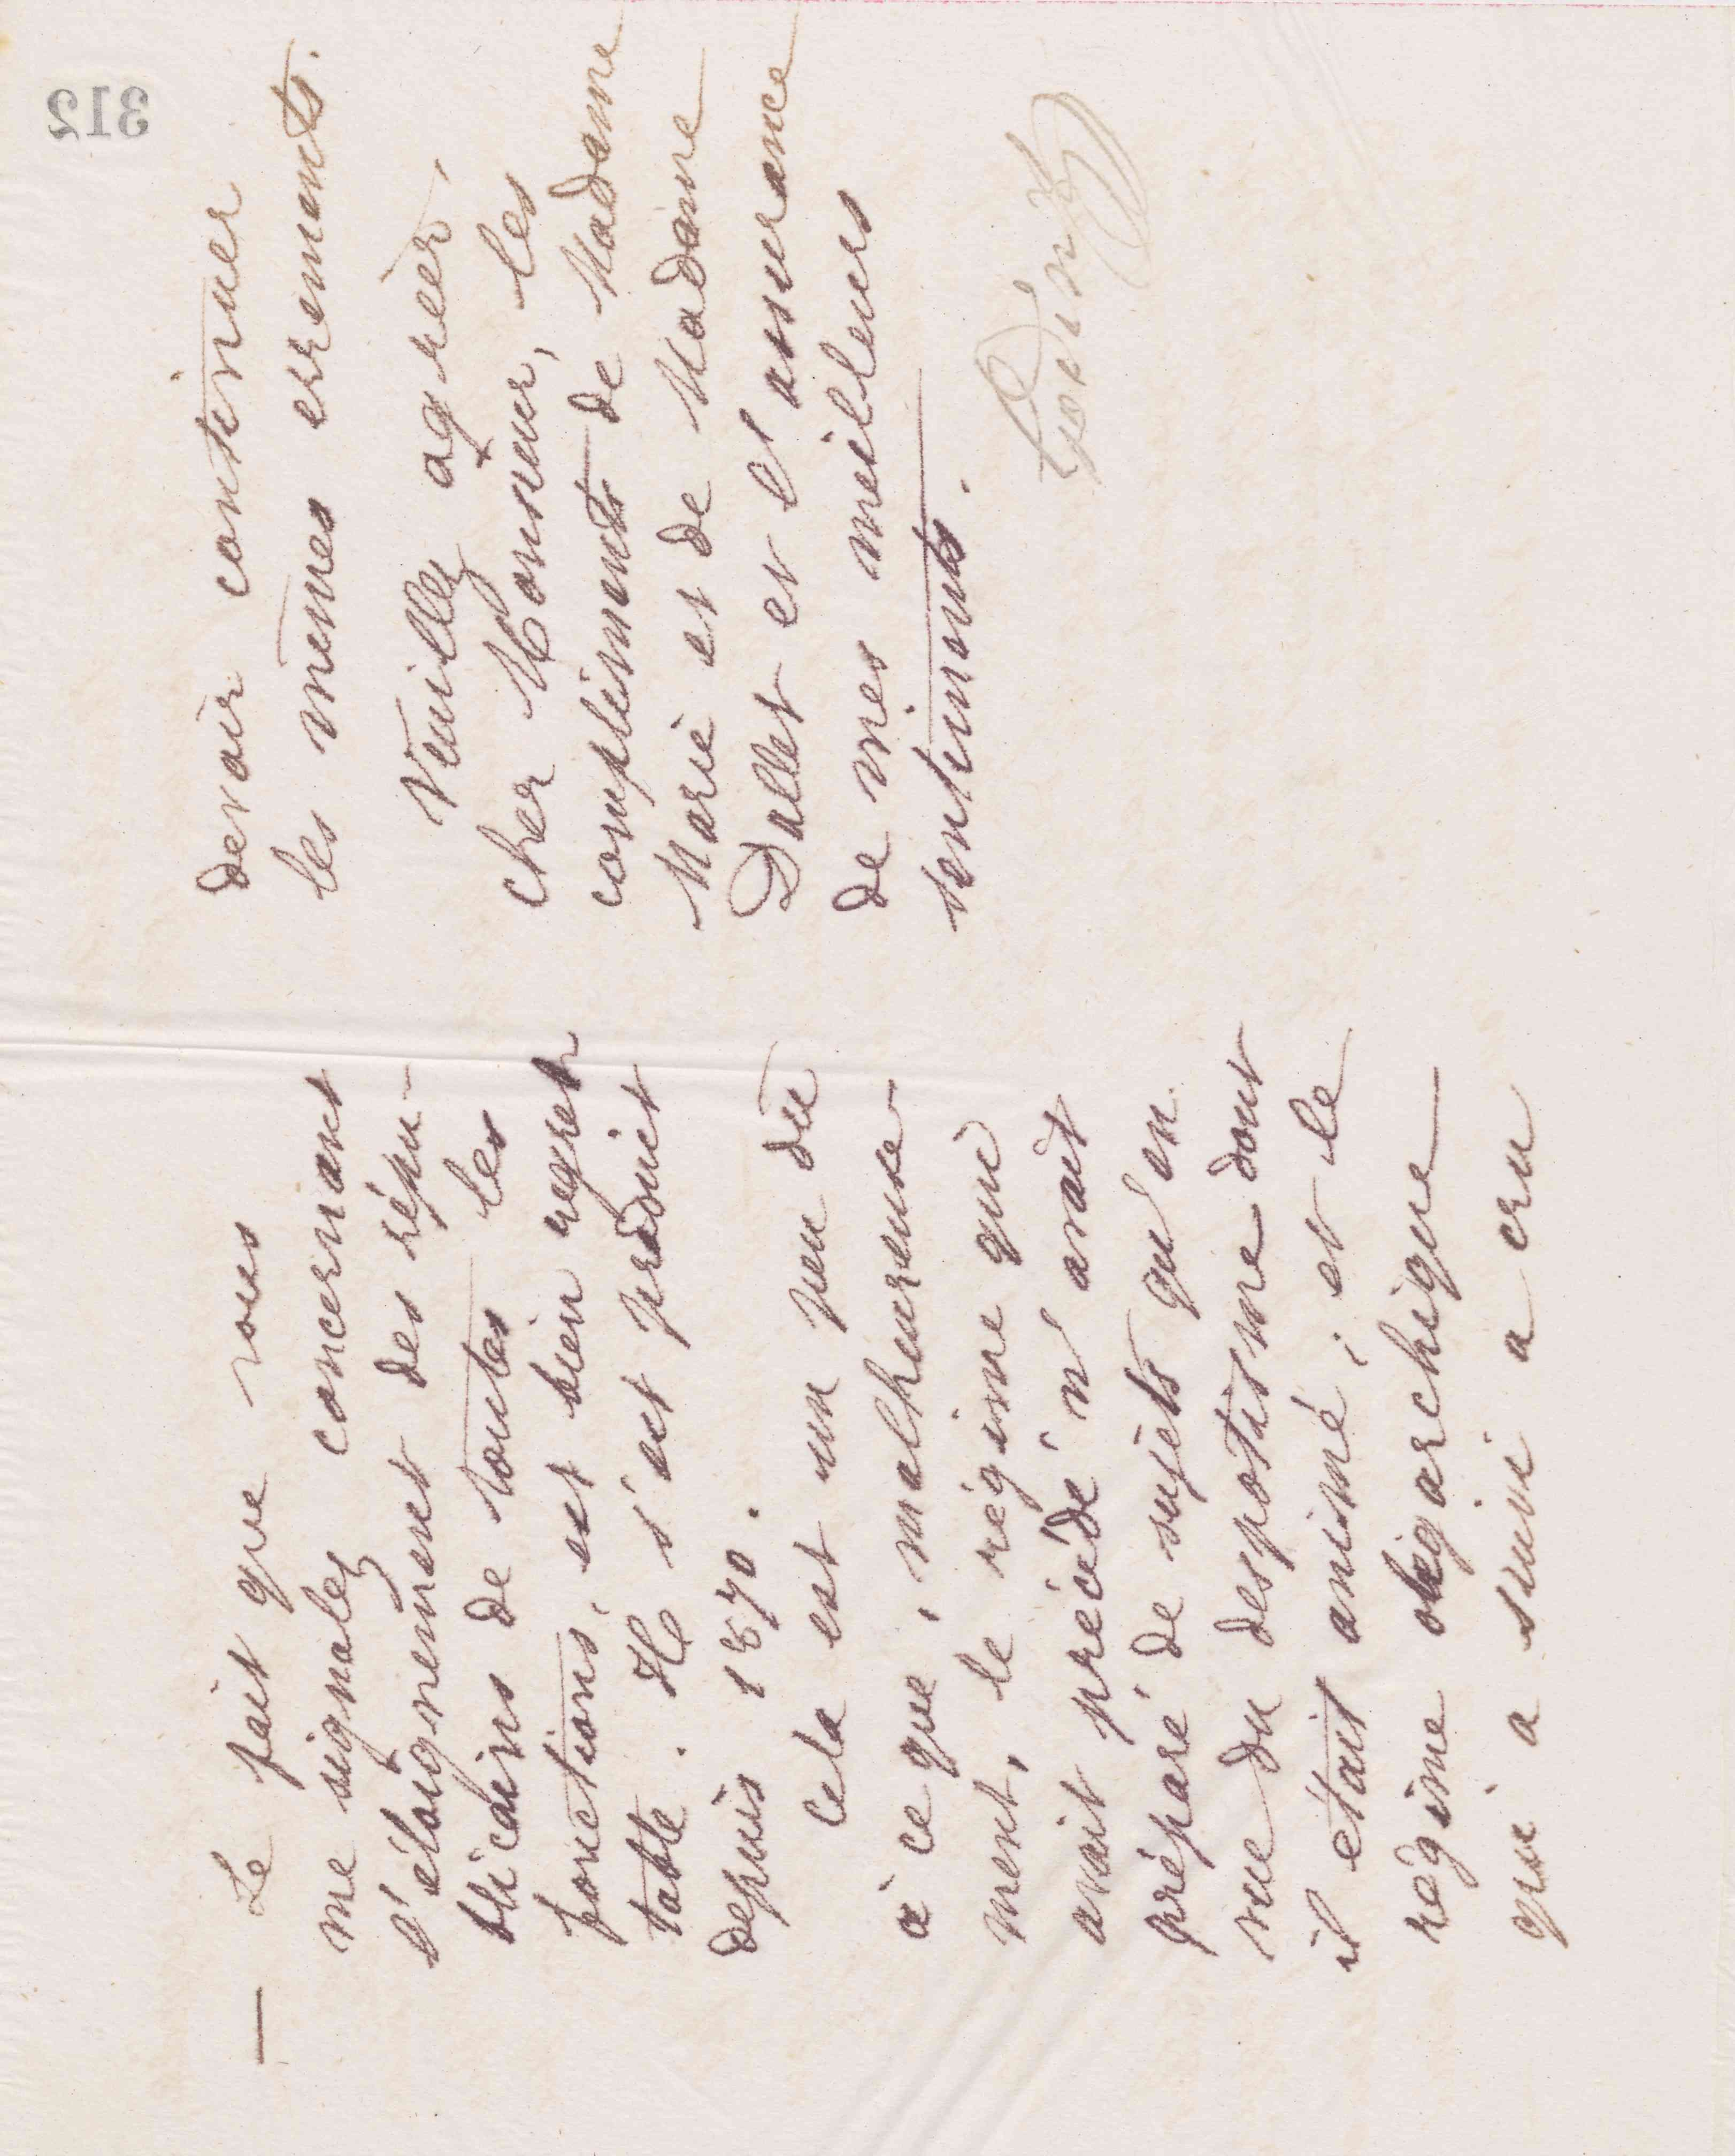 — Le fait que vous
me signalez concernant
l'éloignement des répu-
blicains de toutes les
fonctions, est bien regret
table. Il s'est produit
depuis 1870.
Cela est un peu dû
à ce que, malheureuse-
ment, le régime qui
avait précédé n'avait
préparé de sujets qu'en
vue du despotisme dont
il était animé ; et le
régime oligarchique
qui a suivi a cru
devoir continuer
les mêmes errements.
Veuillez agréer,
cher Monsieur, les
compliments de Madame
Marie et de Madame
Dallet et l'assurance
de mes meilleurs
sentiments.
Godin
312